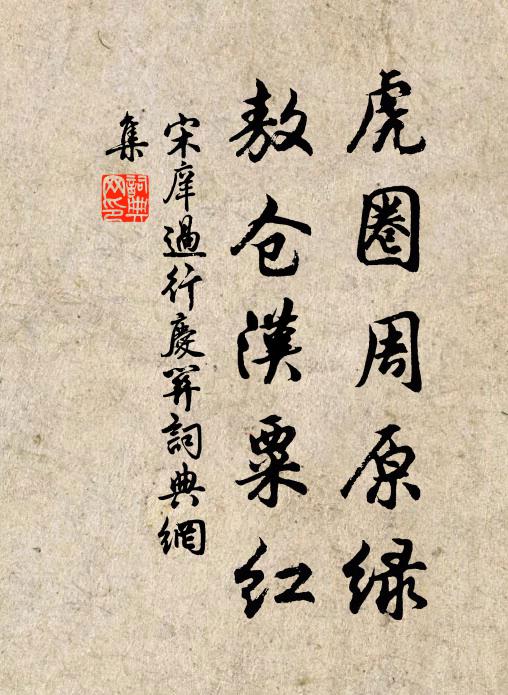 虎圈周原绿
敖仓漢粟红
宋庠過行慶関詞典網
集
詞典
网印